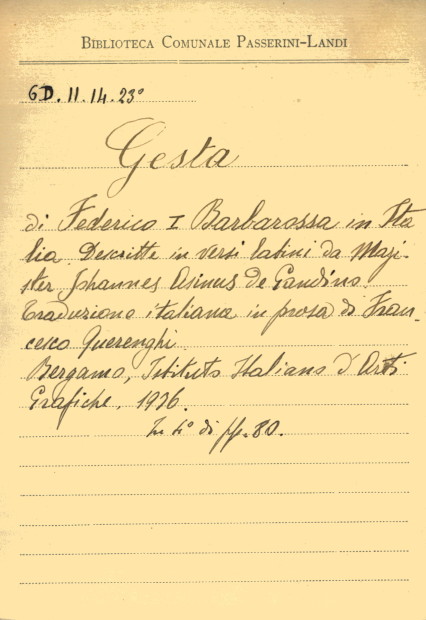 BIBLIOTECA COMUNALE PASSERINI-LANDI
6D. 11. 14. 23°
Gesta
di Federico I Barbarossa in Ita
lia Descritte in versi latini da Maji-
ster Johannes Asinus de Gandino.
Traduzione italiana in prosa di Fran-
cesco Querenghi.
Bergamo, Istituto Italiano d'Arti
Grafiche. 1926.
In 4° di pp. 80.